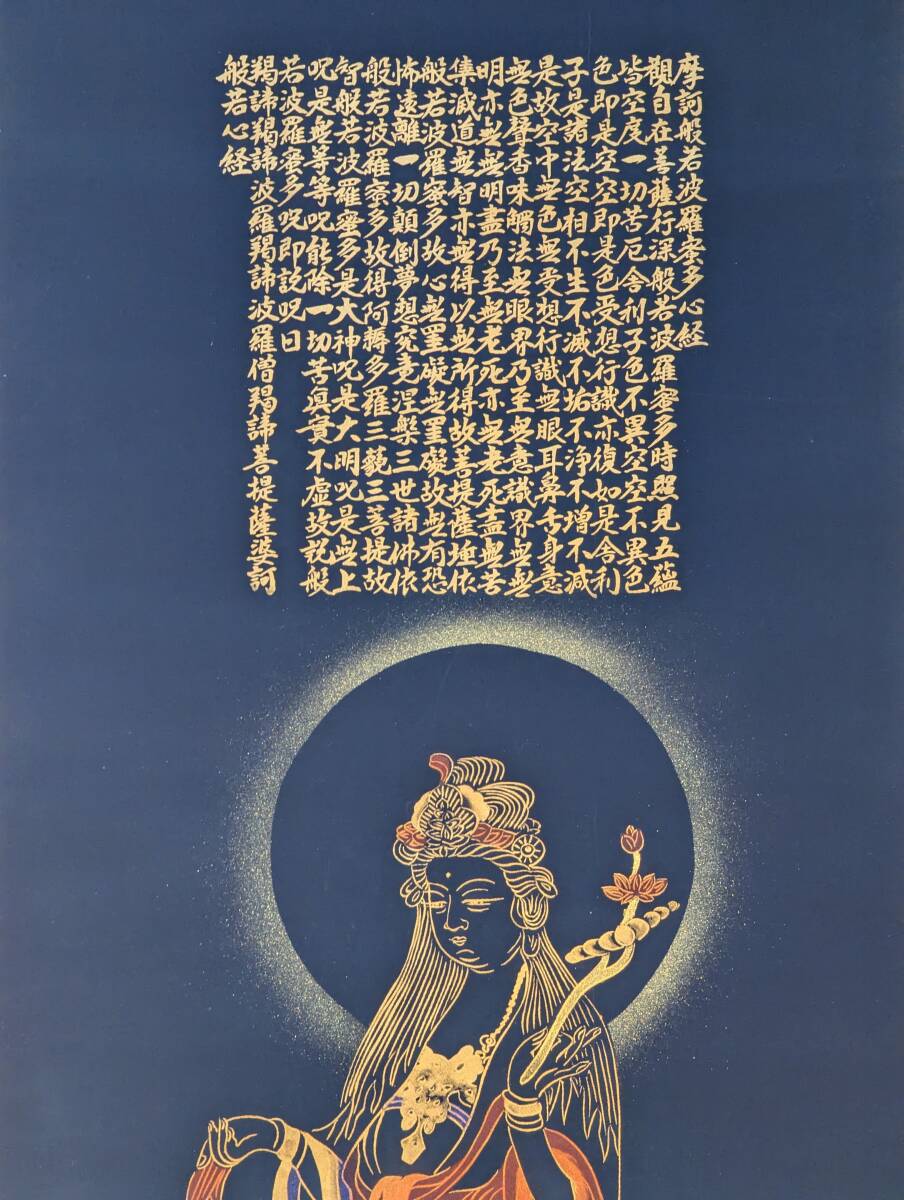 摩訶般若波羅蜜多心経
觀自在菩薩行深般若波羅蜜多時照見五蘊
皆空度一切苦厄舎利子色不異空空不異色
色即是空空即是色受想行識亦復如是舎利
子是諸法空相不生不滅不垢不浄不増不減
是故空中無色無受想行識無眼耳鼻舌身意
無色聲香味觸法無眼界乃至無意識界無無
明亦無無明盡乃至無老死亦無老死盡無苦
集滅道無智亦無得以無所得故菩提薩埵依
般若波羅蜜多故心無罣礙無罣礙故無有恐
怖遠離一切顛倒夢想究竟涅槃三世諸佛依
般若波羅蜜多故得阿耨多羅三藐三菩提故
智般若波羅蜜多是大神呪是大明呪是無上
呪是無等等呪能除一切苦眞實不虚故説般
若波羅蜜多呪即説呪曰
羯諦羯諦波羅羯諦波羅僧羯諦菩提薩婆訶
般若心経